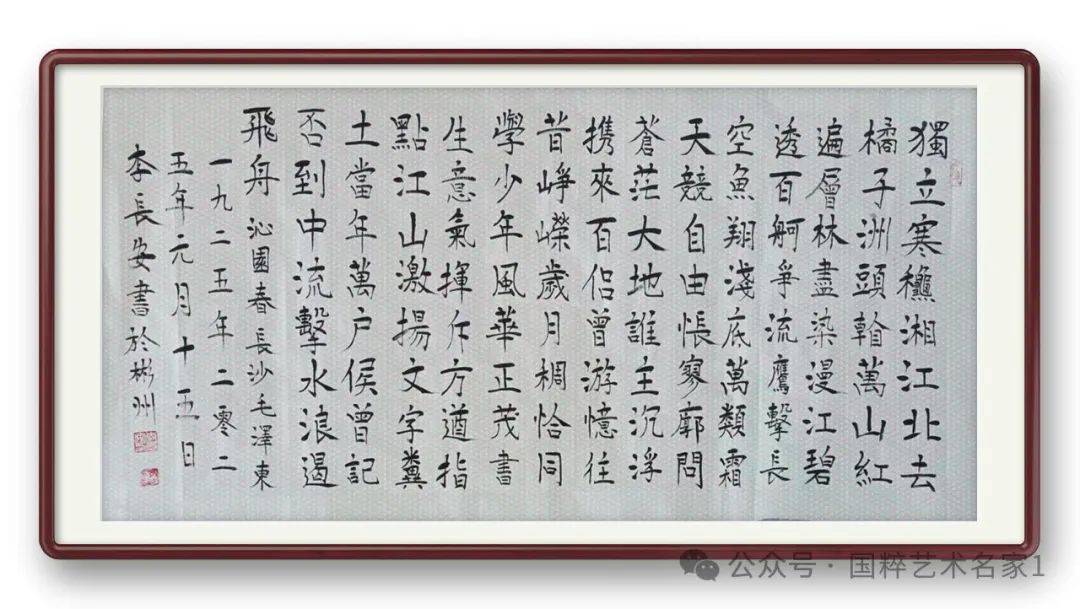 獨立寒穐湘江北去
橘子洲頭翰萬山紅
遍層林盡染漫江碧
透百舸爭流鷹擊長
空魚翔淺底萬類霜
天競自由悵寥廓問
蒼茫大地誰主沉浮
携來百侶曾游憶往
昔崢嶸歲月稠恰同
學少年風華正茂書
生意氣揮斥方遒指
點江山激揚文字糞
土當年萬户侯曾記
否到中流擊水浪遏
飛舟 沁園春長沙毛澤東
一九二五年二零二
五年元月十五日
李長安書於彬州
公众号·国粹艺术名家1